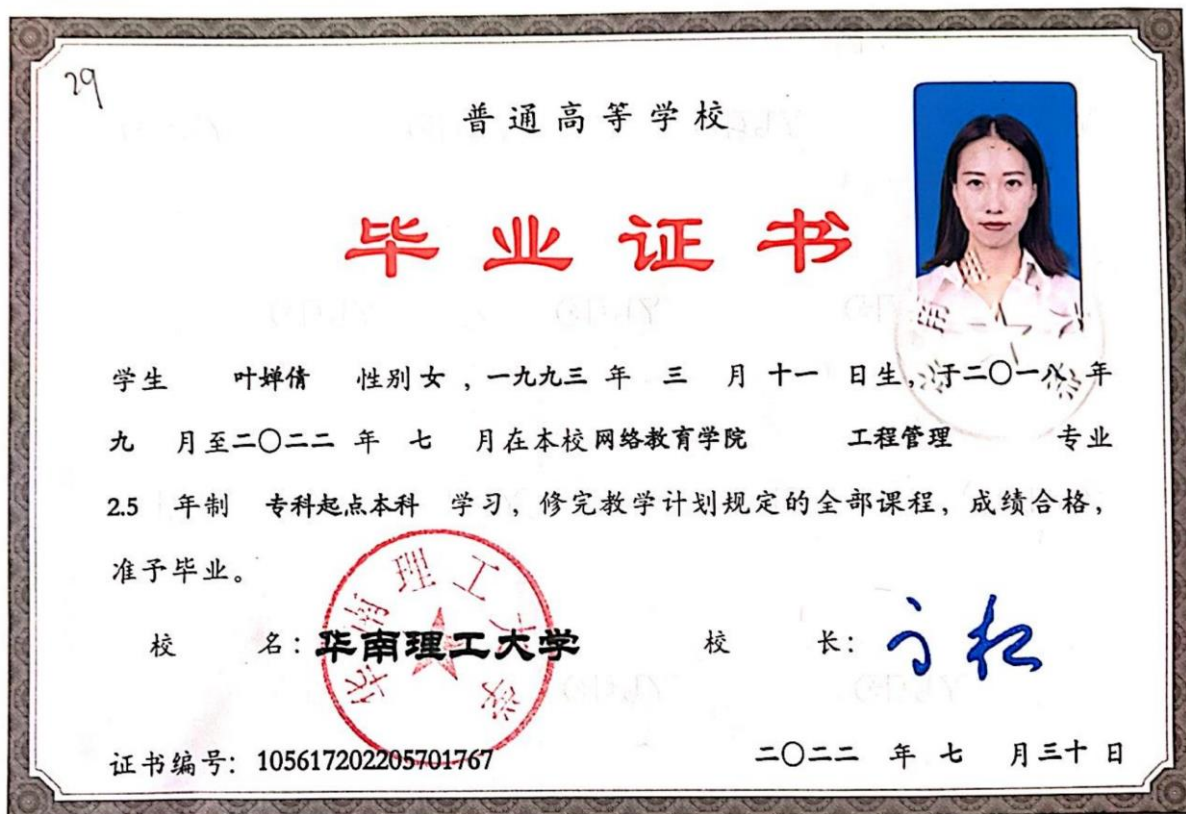 29
普通高等学校
毕业证书
学生 叶婵倩 性别 女 ，一九九三 年 三 月 十一 日生，于二〇一八 年
九 月至二〇二二 年 七 月在本校 网络教育学院 工程管理 专业
2.5 年制 专科起点本科 学习，修完教学计划规定的全部课程，成绩合格，
准予毕业。
华南理工大学
校 名：华南理工大学 校 长：
证书编号：105617202205701767 二〇二二 年 七 月三十 日